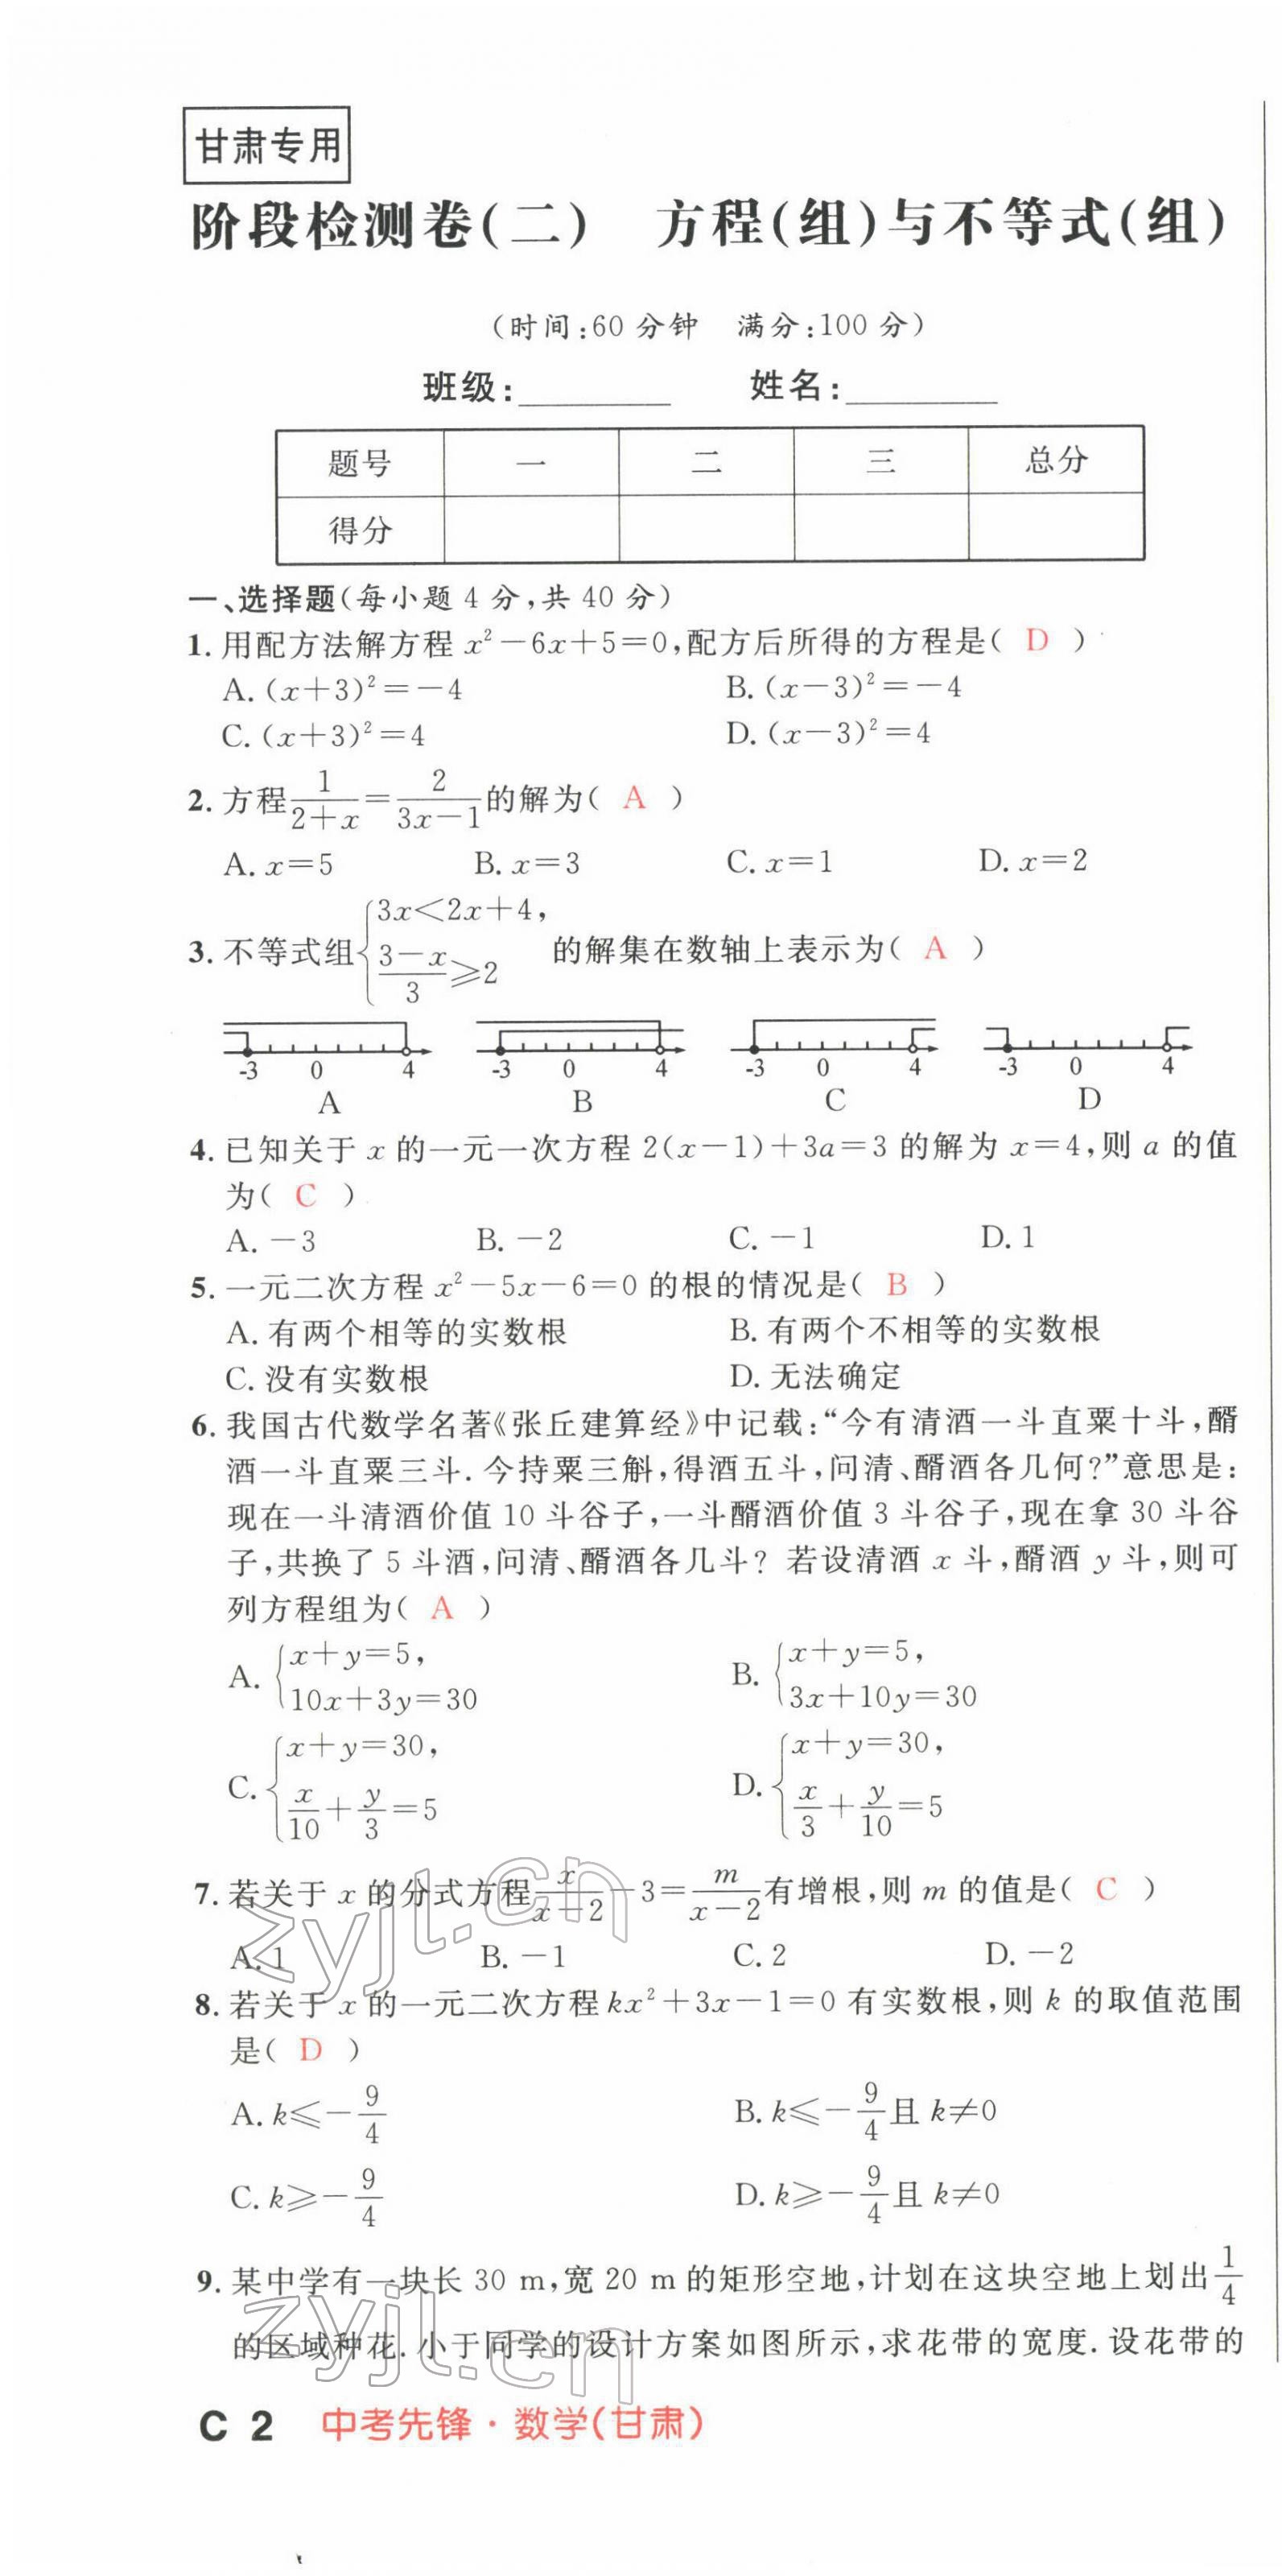 甘肃专用
阶段检测卷(二)　方程(组)与不等式(组)
(时间:60 分钟　满分:100 分)
班级:________　姓名:________
题号　一　二　三　总分
得分
一、选择题(每小题 4 分,共 40 分)
1. 用配方法解方程 x²-6x+5=0,配方后所得的方程是( D )
A. (x+3)²=-4　B. (x-3)²=-4
C. (x+3)²=4　D. (x-3)²=4
2. 方程 1/(2+x)=2/(3x-1) 的解为( A )
A. x=5　B. x=3　C. x=1　D. x=2
3. 不等式组 {3x<2x+4, (3-x)/3≥2 的解集在数轴上表示为( A )
-3 0 4　-3 0 4　-3 0 4　-3 0 4
A　B　C　D
4. 已知关于 x 的一元一次方程 2(x-1)+3a=3 的解为 x=4,则 a 的值
为( C )
A. -3　B. -2　C. -1　D. 1
5. 一元二次方程 x²-5x-6=0 的根的情况是( B )
A. 有两个相等的实数根　B. 有两个不相等的实数根
C. 没有实数根　D. 无法确定
6. 我国古代数学名著《张丘建算经》中记载:“今有清酒一斗直粟十斗,醑
酒一斗直粟三斗. 今持粟三斛,得酒五斗,问清、醑酒各几何?”意思是:
现在一斗清酒价值 10 斗谷子,一斗醑酒价值 3 斗谷子,现在拿 30 斗谷
子,共换了 5 斗酒,问清、醑酒各几斗? 若设清酒 x 斗,醑酒 y 斗,则可
列方程组为( A )
A. {x+y=5, 10x+3y=30　B. {x+y=5, 3x+10y=30
C. {x+y=30, x/10+y/3=5　D. {x+y=30, x/3+y/10=5
7. 若关于 x 的分式方程 x/(x-2)-3=m/(x-2) 有增根,则 m 的值是( C )
A. 1　B. -1　C. 2　D. -2
zyjl.cn
8. 若关于 x 的一元二次方程 kx²+3x-1=0 有实数根,则 k 的取值范围
是( D )
A. k≤-9/4　B. k≤-9/4 且 k≠0
C. k≥-9/4　D. k≥-9/4 且 k≠0
9. 某中学有一块长 30 m,宽 20 m 的矩形空地,计划在这块空地上划出 1/4
的区域种花. 小于同学的设计方案如图所示,求花带的宽度. 设花带的
zyjl.cn
C 2　中考先锋·数学(甘肃)